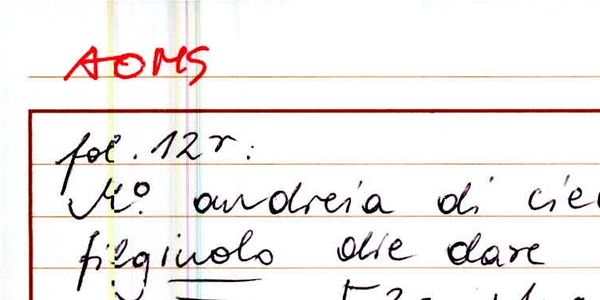 AOMS
fol. 12r:
Mº. andreia di cie
filginolo die dare